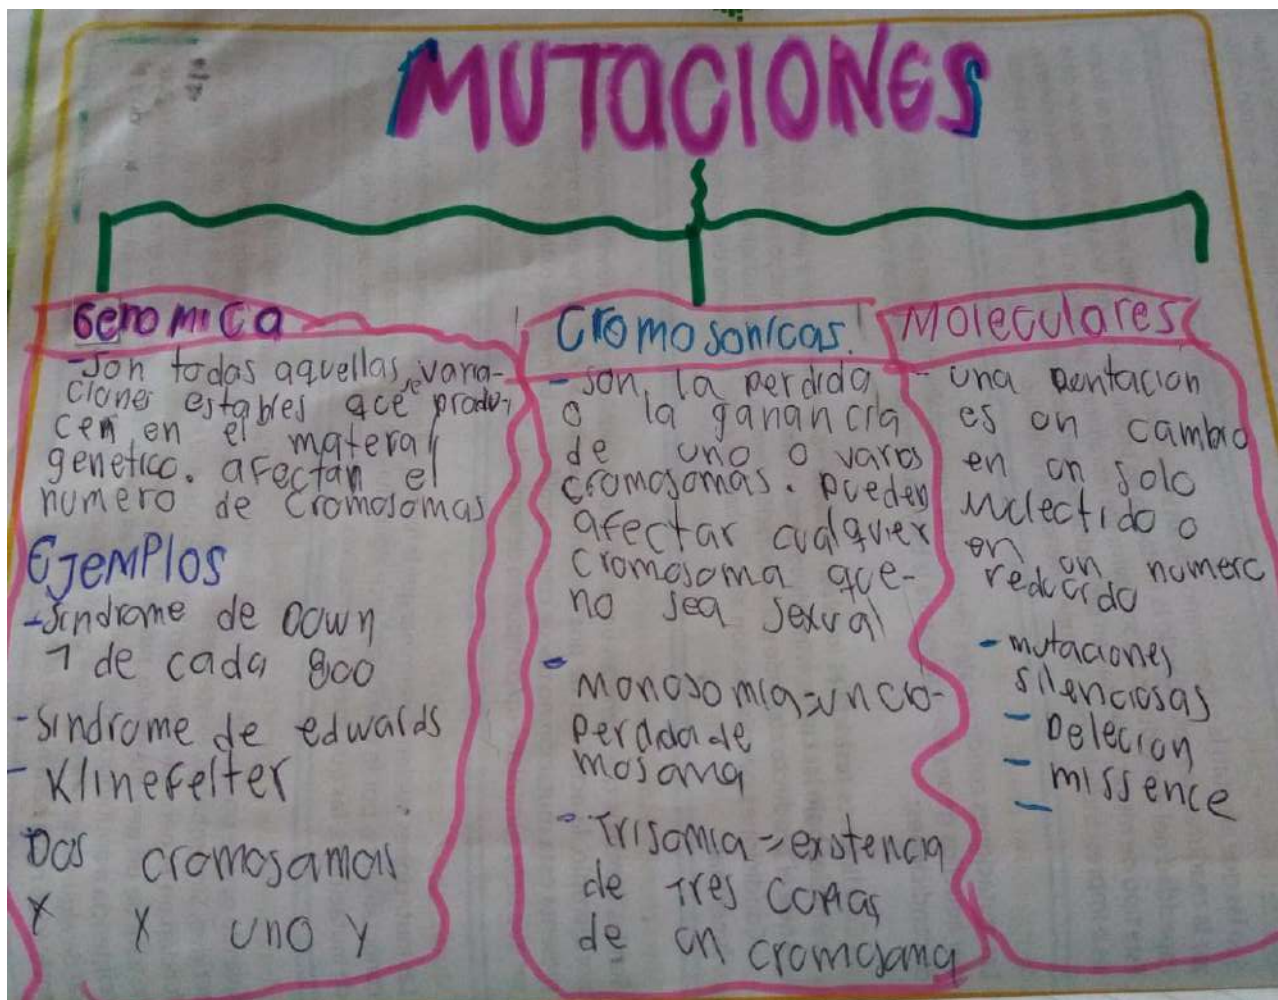 MUTACIONES
Genomica
-Son todas aquellas varia-
ciones estables que se produ-
cen en el materal
genetico. afectan el
numero de cromosomas
EJEMPLOS
-Sindrome de Down
1 de cada 800
-Sindrome de edwards
- Klinefelter
Dos cromosamas
X X uno y
Cromosonicas.
- son la perdida
o la ganancia
de uno o varos
cromosomas. pueden
afectar cualquier
cromosoma que-
no sea sexual
- Monosomia = un cro-
perdida de
mosoma
- Trisomia = existencia
de Tres copias
de un cromosoma
Moleculares
- una
es un cambio
en un solo
en un numero
reducido
- mutaciones
silenciosas
- Delecion
- missence
-